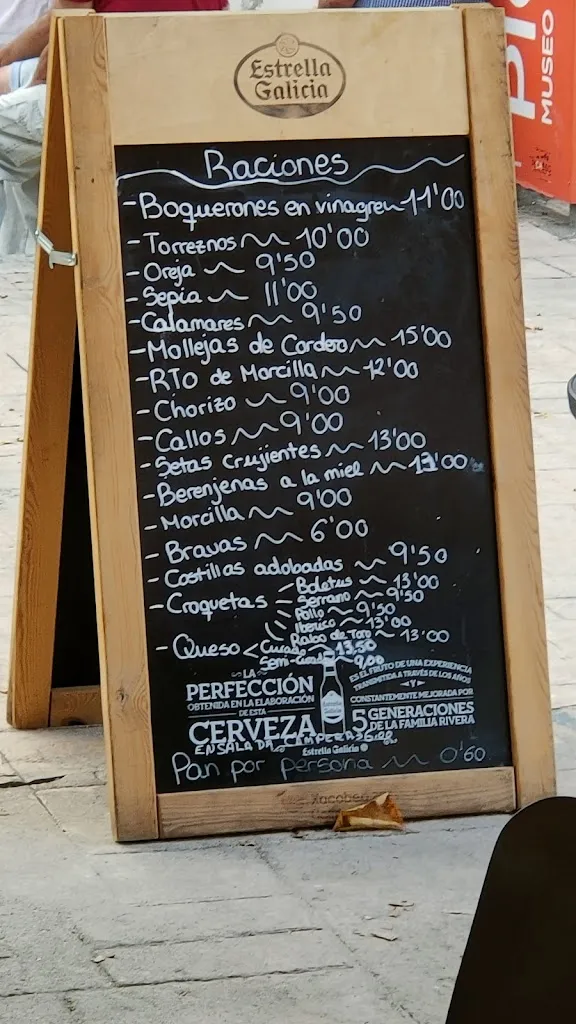 Estrella
Galicia
Raciones
-Boquerones en vinagre 11'00
-Torreznos 10'00
-Oreja 9'50
-Sepia 11'00
-Calamares 9'50
-Mollejas de Cordero 15'00
-RTO de Morcilla 12'00
-Chorizo 9'00
-Callos 9'00
-Setas Crujientes 13'00
-Berenjenas a la miel 13'00
-Morcilla 9'00
-Bravas 6'00
-Costillas adobadas 9'50
-Croquetas
Boletus 13'00
Serrano 9'50
Pollo 9'50
Iberico 13'00
Rabo de Toro 13'00
-Queso
Curado 13,50
Semi-curado 9,00
LA
PERFECCIÓN
OBTENIDA EN LA ELABORACIÓN
DE ESTA
CERVEZA
ES EL FRUTO DE UNA EXPERIENCIA
TRANSMITIDA A TRAVÉS DE LOS AÑOS
Y
CONSTANTEMENTE MEJORADA POR
5 GENERACIONES
DE LA FAMILIA RIVERA
ENSALADA CAMPERA
Estrella Galicia
Pan por persona 0'60
Xacobeo
MUSEO